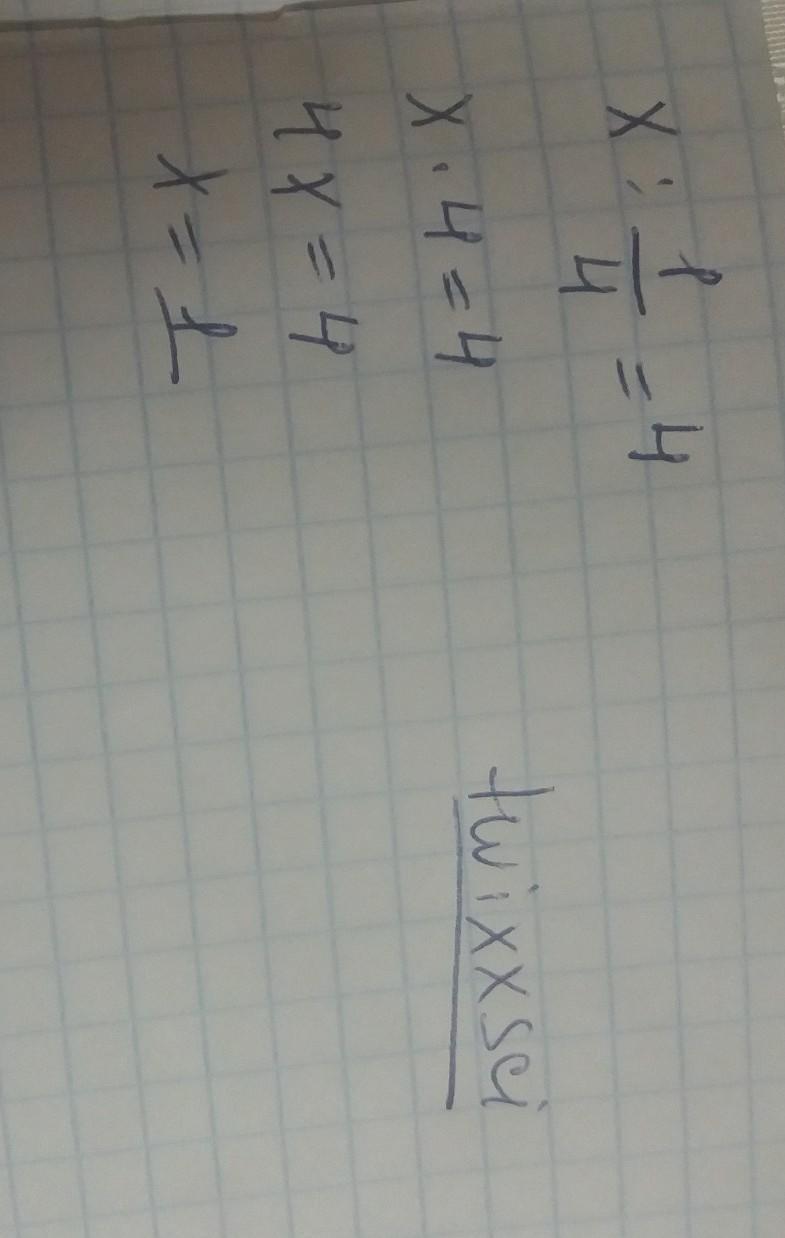 x : 1/4 = 4
x · 4 = 4
4x = 4
x = 1
twixxsci